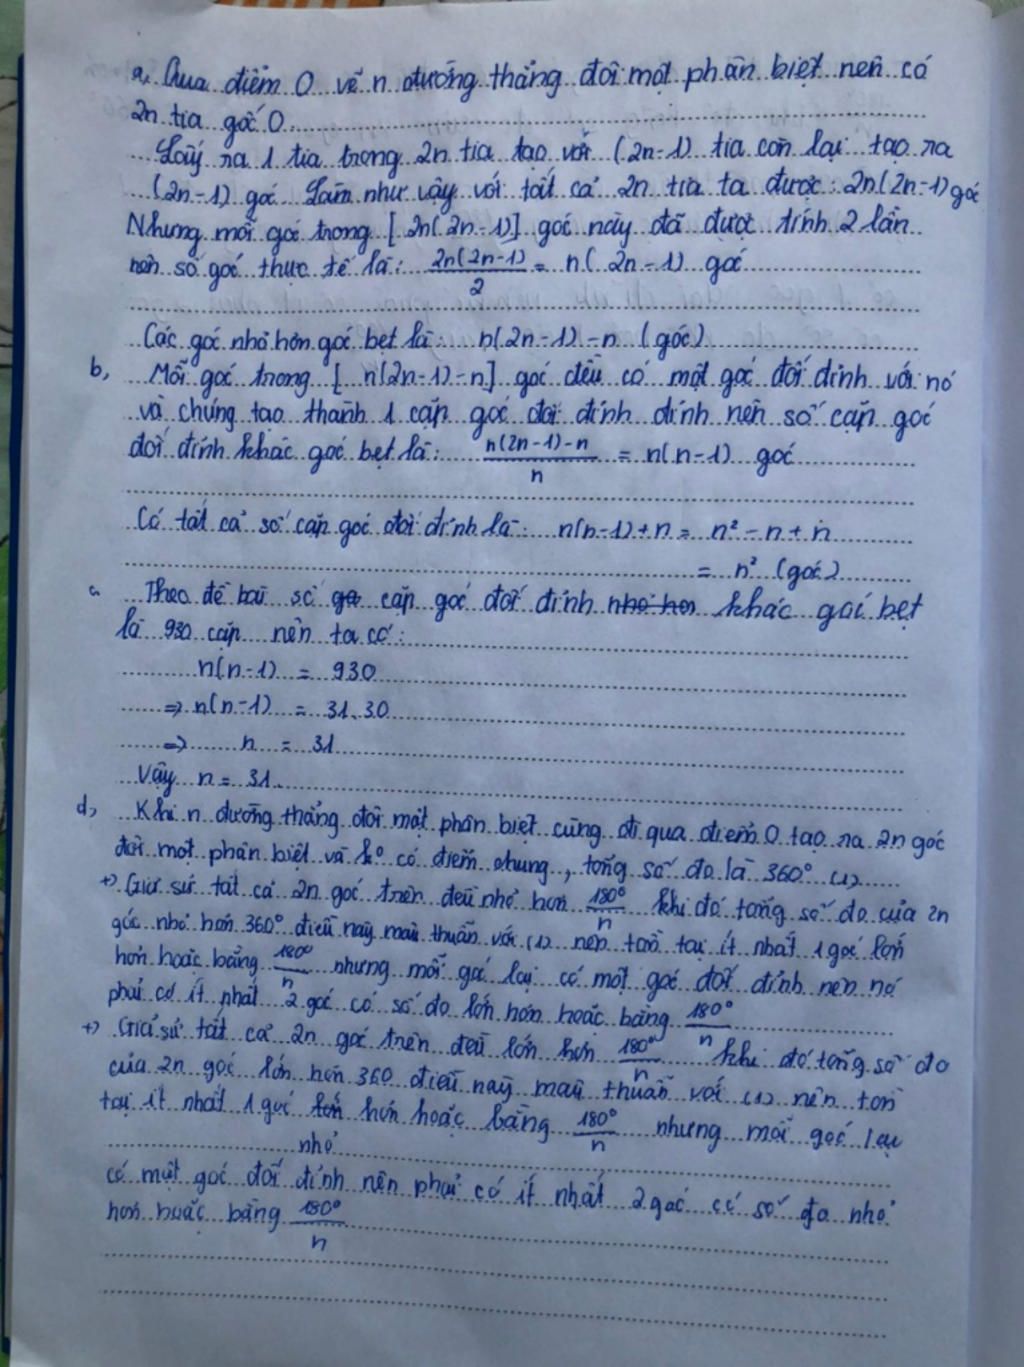 a, Qua điểm O vẽ n đường thẳng đôi một phân biệt nên có
2n tia gốc O.
Lấy ra 1 tia trong 2n tia tạo với (2n-1) tia còn lại tạo ra
(2n-1) góc. Làm như vậy với tất cả 2n tia ta được: 2n(2n-1) góc
Nhưng mỗi góc trong [2n(2n-1)] góc này đã được tính 2 lần
nên số góc thực tế là: \frac{2n(2n-1)}{2} = n(2n-1) góc
Các góc nhỏ hơn góc bẹt là: n(2n-1)-n (góc)
b, Mỗi góc trong [n(2n-1)-n] góc đều có một góc đối đỉnh với nó
và chúng tạo thành 1 cặp góc đối đỉnh đỉnh nên số cặp góc
đối đỉnh khác góc bẹt là: \frac{n(2n-1)-n}{n} = n(n-1) góc
Có tất cả số cặp góc đối đỉnh là: n(n-1)+n = n² - n + n
= n² (góc)
c Theo đề bài số cặp góc đối đỉnh nhỏ hơn khác góc bẹt
là 930 cặp nên ta có:
n(n-1) = 930
=> n(n-1) = 31.30
=> n = 31
Vậy n = 31.
d, Khi n đường thẳng đôi một phân biệt cùng đi qua điểm O tạo ra 2n góc
đôi một phân biệt và k° có điểm chung, tổng số đo là 360° (1)
+) Giả sử tất cả 2n góc trên đều nhỏ hơn \frac{180°}{n} khi đó tổng số đo của 2n
góc nhỏ hơn 360° điều này mâu thuẫn với (1) nên tồn tại ít nhất 1 góc lớn
hơn hoặc bằng \frac{180°}{n} nhưng mỗi góc lại có một góc đối đỉnh nên nó
phải có ít nhất 2 góc có số đo lớn hơn hoặc bằng \frac{180°}{n}
+) Giả sử tất cả 2n góc trên đều lớn hơn \frac{180°}{n} khi đó tổng số đo
của 2n góc lớn hơn 360 điều này mâu thuẫn với (1) nên tồn
tại ít nhất 1 góc lớn hơn hoặc bằng \frac{180°}{n} nhưng mỗi góc lại
nhỏ
có một góc đối đỉnh nên phải có ít nhất 2 góc có số đo nhỏ
hơn hoặc bằng \frac{180°}{n}